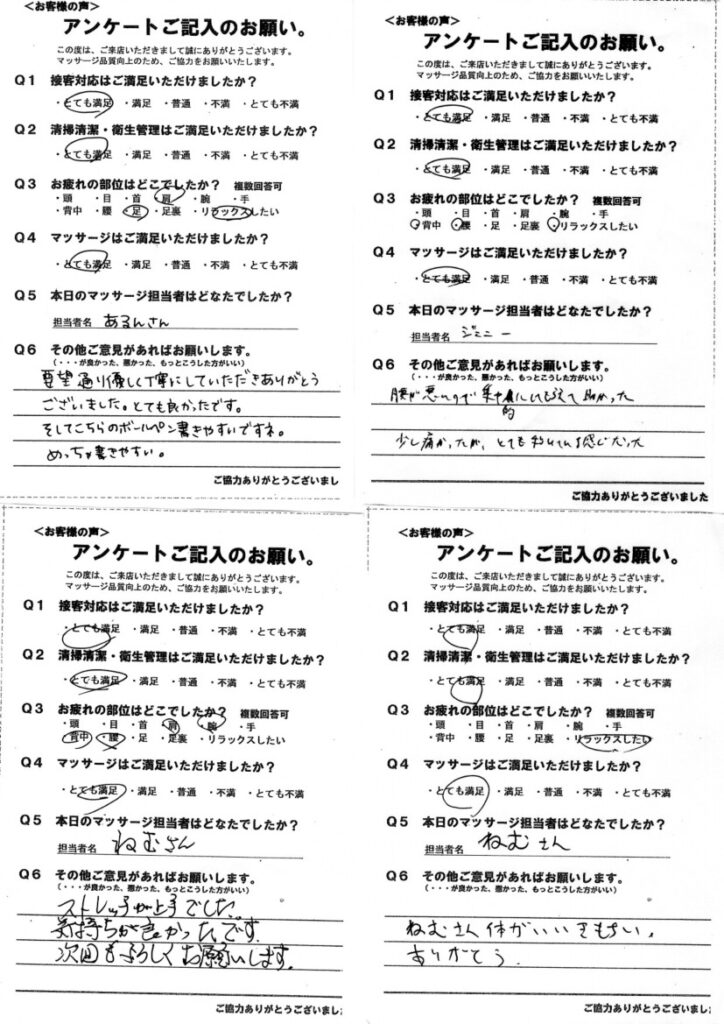 ＜お客様の声＞
アンケートご記入のお願い。
この度は、ご来店いただきまして誠にありがとうございます。
マッサージ品質向上のため、ご協力をお願いいたします。
Q1 接客対応はご満足いただけましたか？
・とても満足 ・満足 ・普通 ・不満 ・とても不満
Q2 清掃清潔・衛生管理はご満足いただけましたか？
・とても満足 ・満足 ・普通 ・不満 ・とても不満
Q3 お疲れの部位はどこでしたか？ 複数回答可
・頭 ・目 ・首 ・肩 ・腕 ・手
・背中 ・腰 ・足 ・足裏 ・リラックスしたい
Q4 マッサージはご満足いただけましたか？
・とても満足 ・満足 ・普通 ・不満 ・とても不満
Q5 本日のマッサージ担当者はどなたでしたか？
担当者名 あるんさん
Q6 その他ご意見があればお願いします。
（・・・が良かった、悪かった、もっとこうした方がいい）
要望通り優しく丁寧にしていただきありがとう
ございました。とても良かったです。
そしてこちらのボールペン書きやすいですネ。
めっちゃ書きやすい。
ご協力ありがとうございまし
＜お客様の声＞
アンケートご記入のお願い。
この度は、ご来店いただきまして誠にありがとうございます。
マッサージ品質向上のため、ご協力をお願いいたします。
Q1 接客対応はご満足いただけましたか？
・とても満足 ・満足 ・普通 ・不満 ・とても不満
Q2 清掃清潔・衛生管理はご満足いただけましたか？
・とても満足 ・満足 ・普通 ・不満 ・とても不満
Q3 お疲れの部位はどこでしたか？ 複数回答可
・頭 ・目 ・首 ・肩 ・腕 ・手
・背中 ・腰 ・足 ・足裏 ・リラックスしたい
Q4 マッサージはご満足いただけましたか？
・とても満足 ・満足 ・普通 ・不満 ・とても不満
Q5 本日のマッサージ担当者はどなたでしたか？
担当者名 ジミニー
Q6 その他ご意見があればお願いします。
（・・・が良かった、悪かった、もっとこうした方がいい）
腰が悪いので集中的に
助かった
少し痛かったが、とても
感じだった
ご協力ありがとうございました
＜お客様の声＞
アンケートご記入のお願い。
この度は、ご来店いただきまして誠にありがとうございます。
マッサージ品質向上のため、ご協力をお願いいたします。
Q1 接客対応はご満足いただけましたか？
・とても満足 ・満足 ・普通 ・不満 ・とても不満
Q2 清掃清潔・衛生管理はご満足いただけましたか？
・とても満足 ・満足 ・普通 ・不満 ・とても不満
Q3 お疲れの部位はどこでしたか？ 複数回答可
・頭 ・目 ・首 ・肩 ・腕 ・手
・背中 ・腰 ・足 ・足裏 ・リラックスしたい
Q4 マッサージはご満足いただけましたか？
・とても満足 ・満足 ・普通 ・不満 ・とても不満
Q5 本日のマッサージ担当者はどなたでしたか？
担当者名 ねむさん
Q6 その他ご意見があればお願いします。
（・・・が良かった、悪かった、もっとこうした方がいい）
ストレッチが上手でした
気持ちが良かったです。
次回もよろしくお願いします。
ご協力ありがとうございまし
＜お客様の声＞
アンケートご記入のお願い。
この度は、ご来店いただきまして誠にありがとうございます。
マッサージ品質向上のため、ご協力をお願いいたします。
Q1 接客対応はご満足いただけましたか？
・とても満足 ・満足 ・普通 ・不満 ・とても不満
Q2 清掃清潔・衛生管理はご満足いただけましたか？
・とても満足 ・満足 ・普通 ・不満 ・とても不満
Q3 お疲れの部位はどこでしたか？ 複数回答可
・頭 ・目 ・首 ・肩 ・腕 ・手
・背中 ・腰 ・足 ・足裏 ・リラックスしたい
Q4 マッサージはご満足いただけましたか？
・とても満足 ・満足 ・普通 ・不満 ・とても不満
Q5 本日のマッサージ担当者はどなたでしたか？
担当者名 ねむさん
Q6 その他ご意見があればお願いします。
（・・・が良かった、悪かった、もっとこうした方がいい）
ねむさん体がいいきもちい。
ありがとう.
ご協力ありがとうございまし